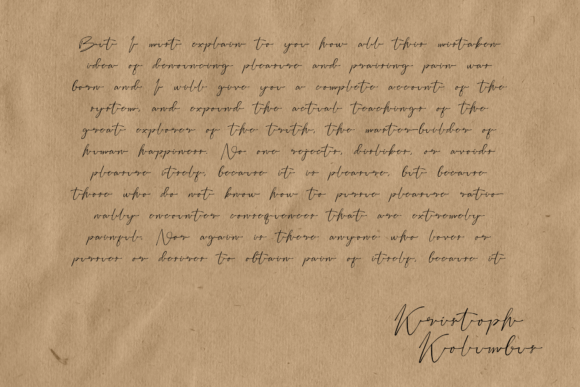 But I must explain to you how all this mistaken
idea of denouncing pleasure and praising pain was
born and I will give you a complete account of the
system, and expound the actual teachings of the
great explorer of the truth, the master-builder of
human happiness. No one rejects, dislikes, or avoids
pleasure itself, because it is pleasure, but because
those who do not know how to pursue pleasure ratio-
nally encounter consequences that are extremely
painful. Nor again is there anyone who loves or
pursues or desires to obtain pain of itself, because it
Kristoph
Kolumbus